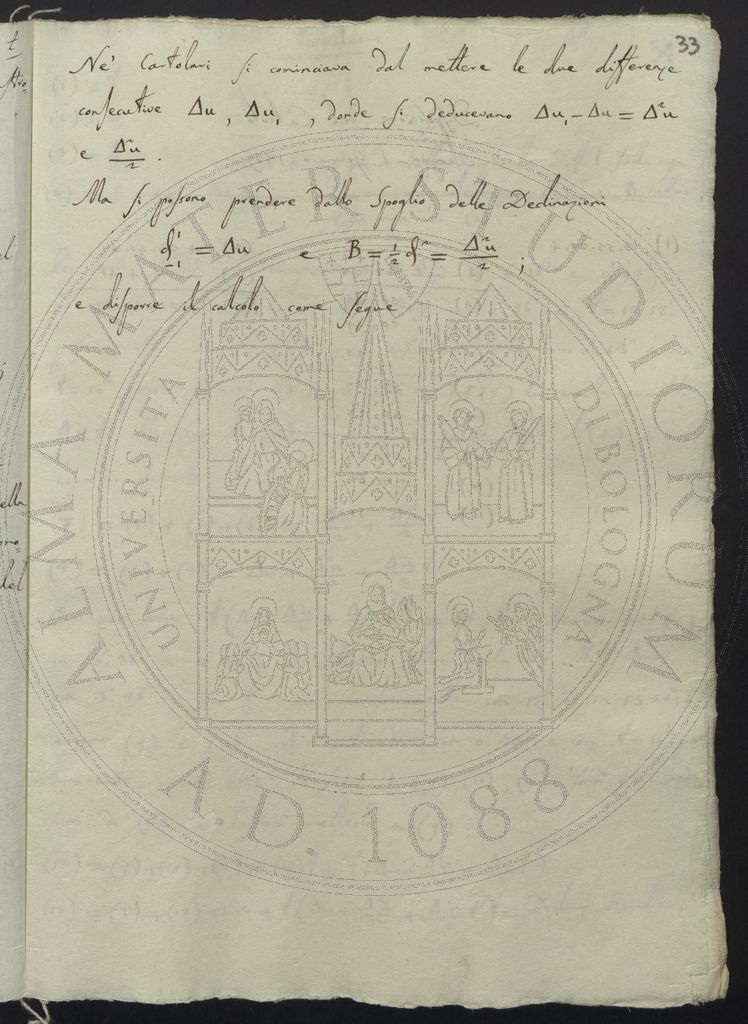 33
Ne' Cartolari si cominciava dal mettere le due differenze
consecutive Δu, Δu₁, donde si deducevano Δu₁ - Δu = Δ²u
e Δ²u/2.
Ma si possono prendere dallo Spoglio delle Declinazioni
= Δu e B = ½ δ² = Δ²u/2 ;
e disporre il calcolo come segue
ALMA MATER STUDIORUM
UNIVERSITA DI BOLOGNA
A.D. 1088
ella
del